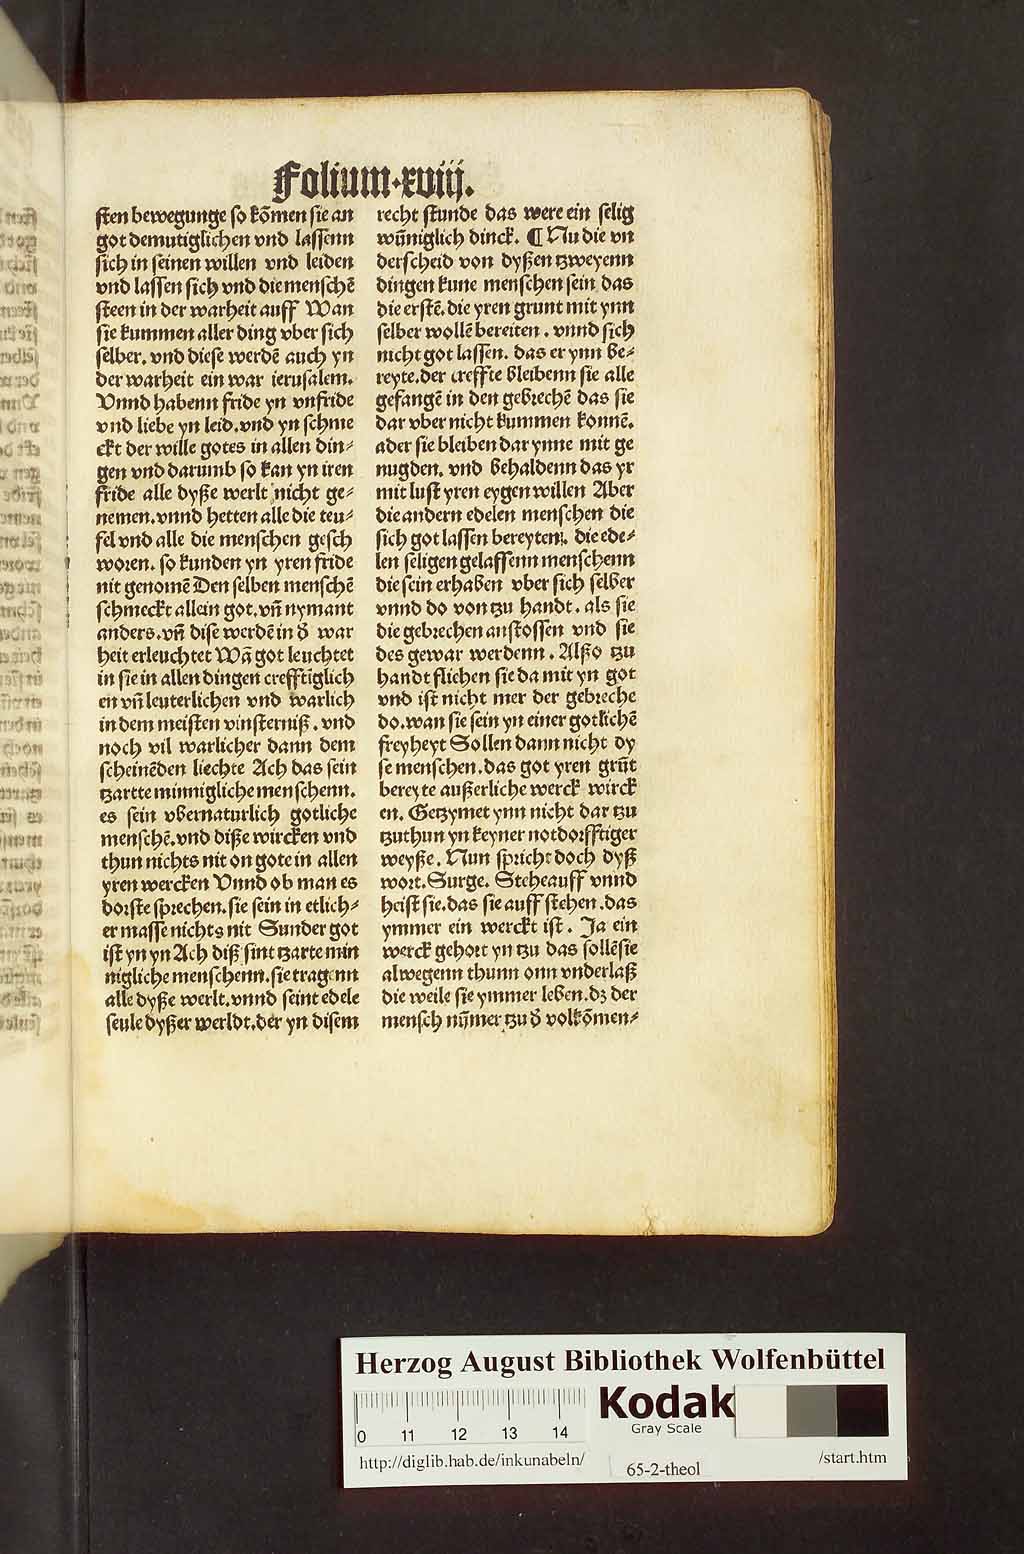 Folium·xviij.
sten bewegunge so kōmen sie an
got demutiglichen vnd lassenn
sich in seinen willen vnd leiden
vnd lassen sich vnd die menschē
steen in der warheit auff Wan
sie kummen aller ding vber sich
selber. vnd diese werdē auch yn
der warheit ein war ierusalem.
Vnnd habenn fride yn vnfride
vnd liebe yn leid. vnd yn schme
ckt der wille gotes in allen din⸗
gen vnd darumb so kan yn iren
fride alle dyße werlt nicht ge⸗
nemen. vnnd hetten alle die teu⸗
fel vnd alle die menschen gesch
woren. so kunden yn yren fride
nit genomē Den selben menschē
schmeckt allein got. vn̄ nymant
anders. vn̄ dise werdē in d̄ war
heit erleuchtet Wā got leuchtet
in sie in allen dingen crefftiglich
en vn̄ leuterlichen vnd warlich
in dem meisten vinsterniß. vnd
noch vil warlicher dann dem
scheinēden liechte Ach das sein
tzartte minnigliche menschenn.
es sein vbernaturlich gotliche
menschē. vnd diße wircken vnd
thun nichts nit on gote in allen
yren wercken Vnnd ob man es
dorste sprechen. sie sein in etlich⸗
er masse nichts nit Sunder got
ist yn yn Ach diß sint tzarte min
nigliche menschenn. sie tragenn
alle dyße werlt. vnnd seint edele
seule dyßer werldt. der yn disem
recht stunde das were ein selig
wūniglich dinck. ¶ Nu die vn
derscheid von dyßen tzweyenn
dingen kune menschen sein das
die erstē. die yren grunt mit ynn
selber wollē bereiten. vnnd sich
nicht got lassen. das er ynn be⸗
reyte. der creffte bleibenn sie alle
gefangē in den gebrechē das sie
dar vber nicht kummen konnē.
ader sie bleiben dar ynne mit ge
nugden. vnd behaldenn das yr
mit lust yren eygen willen Aber
die andern edelen menschen die
sich got lassen bereyten. die ede⸗
len seligen gelassenn menschenn
die sein erhaben vber sich selber
vnnd do von tzu handt. als sie
die gebrechen anstossen vnd sie
des gewar werdenn. Alßo tzu
handt fliehen sie da mit yn got
vnd ist nicht mer der gebreche
do. wan sie sein yn einer gotlichē
freyheyt Sollen dann nicht dy
se menschen. das got yren grūt
bereyte außerliche werck wirck
en. Getzymet ynn nicht dar tzu
tzuthun yn keyner notdorfftiger
weyße. Nun spricht doch dyß
wort. Surge. Stehe auff vnnd
heist sie. das sie auff stehen. das
ymmer ein werckt ist. Ja ein
werck gehort yn tzu das sollē sie
alwegenn thunn onn vnderlaß
die weile sie ymmer leben. dz der
mensch nȳmer tzu d̄ volkōmen⸗
Herzog August Bibliothek Wolfenbüttel
0 11 12 13 14
Kodak
Gray Scale
http://diglib.hab.de/inkunabeln/
65-2-theol
/start.htm